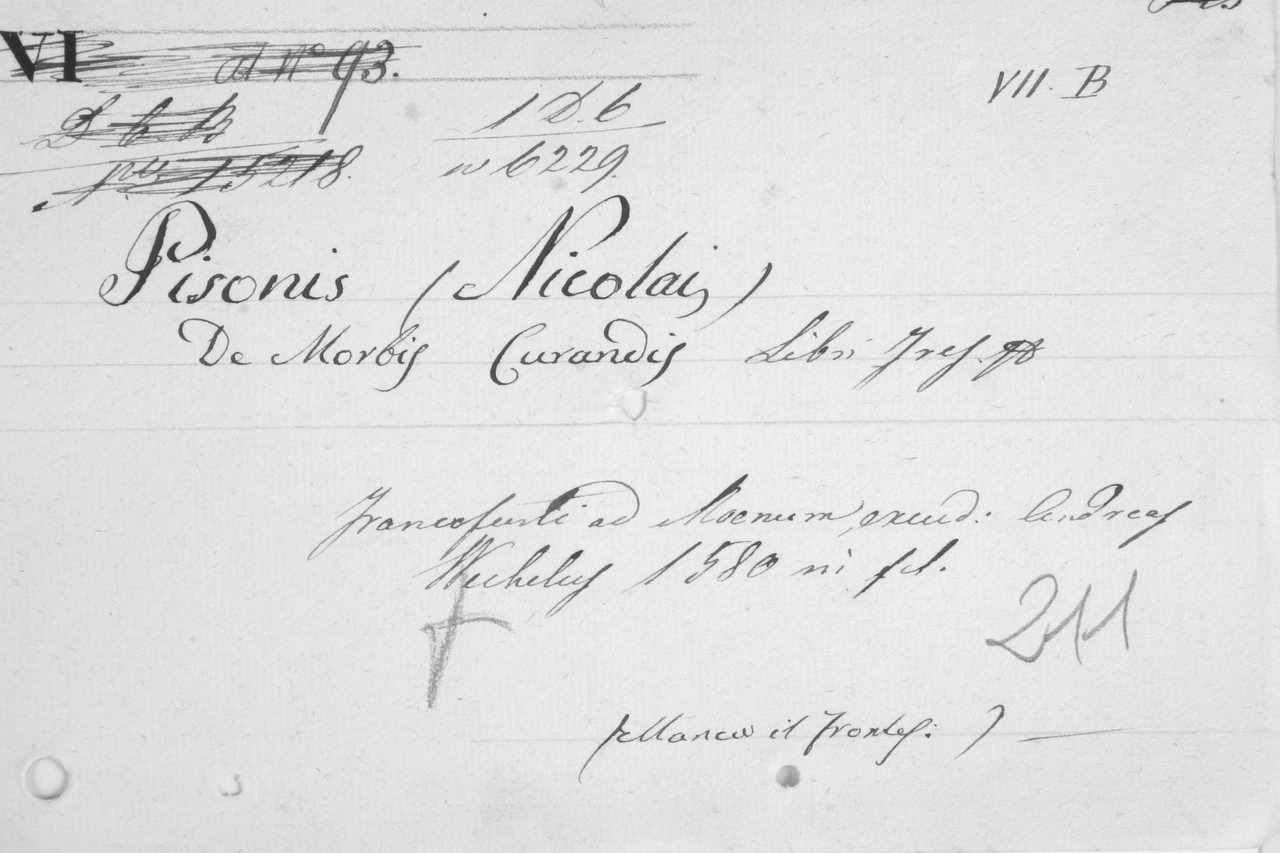 VI ad N° 93.
VII. B
D 6 B
1 D. 6
15218.
n 6229.
Pisonis (Nicolai)
De Morbis Curandis Libri Tres.
Francofurti ad Moenum, excud. Andreas
Wechelus 1580 in fol.
211
(Manca il Frontes: )